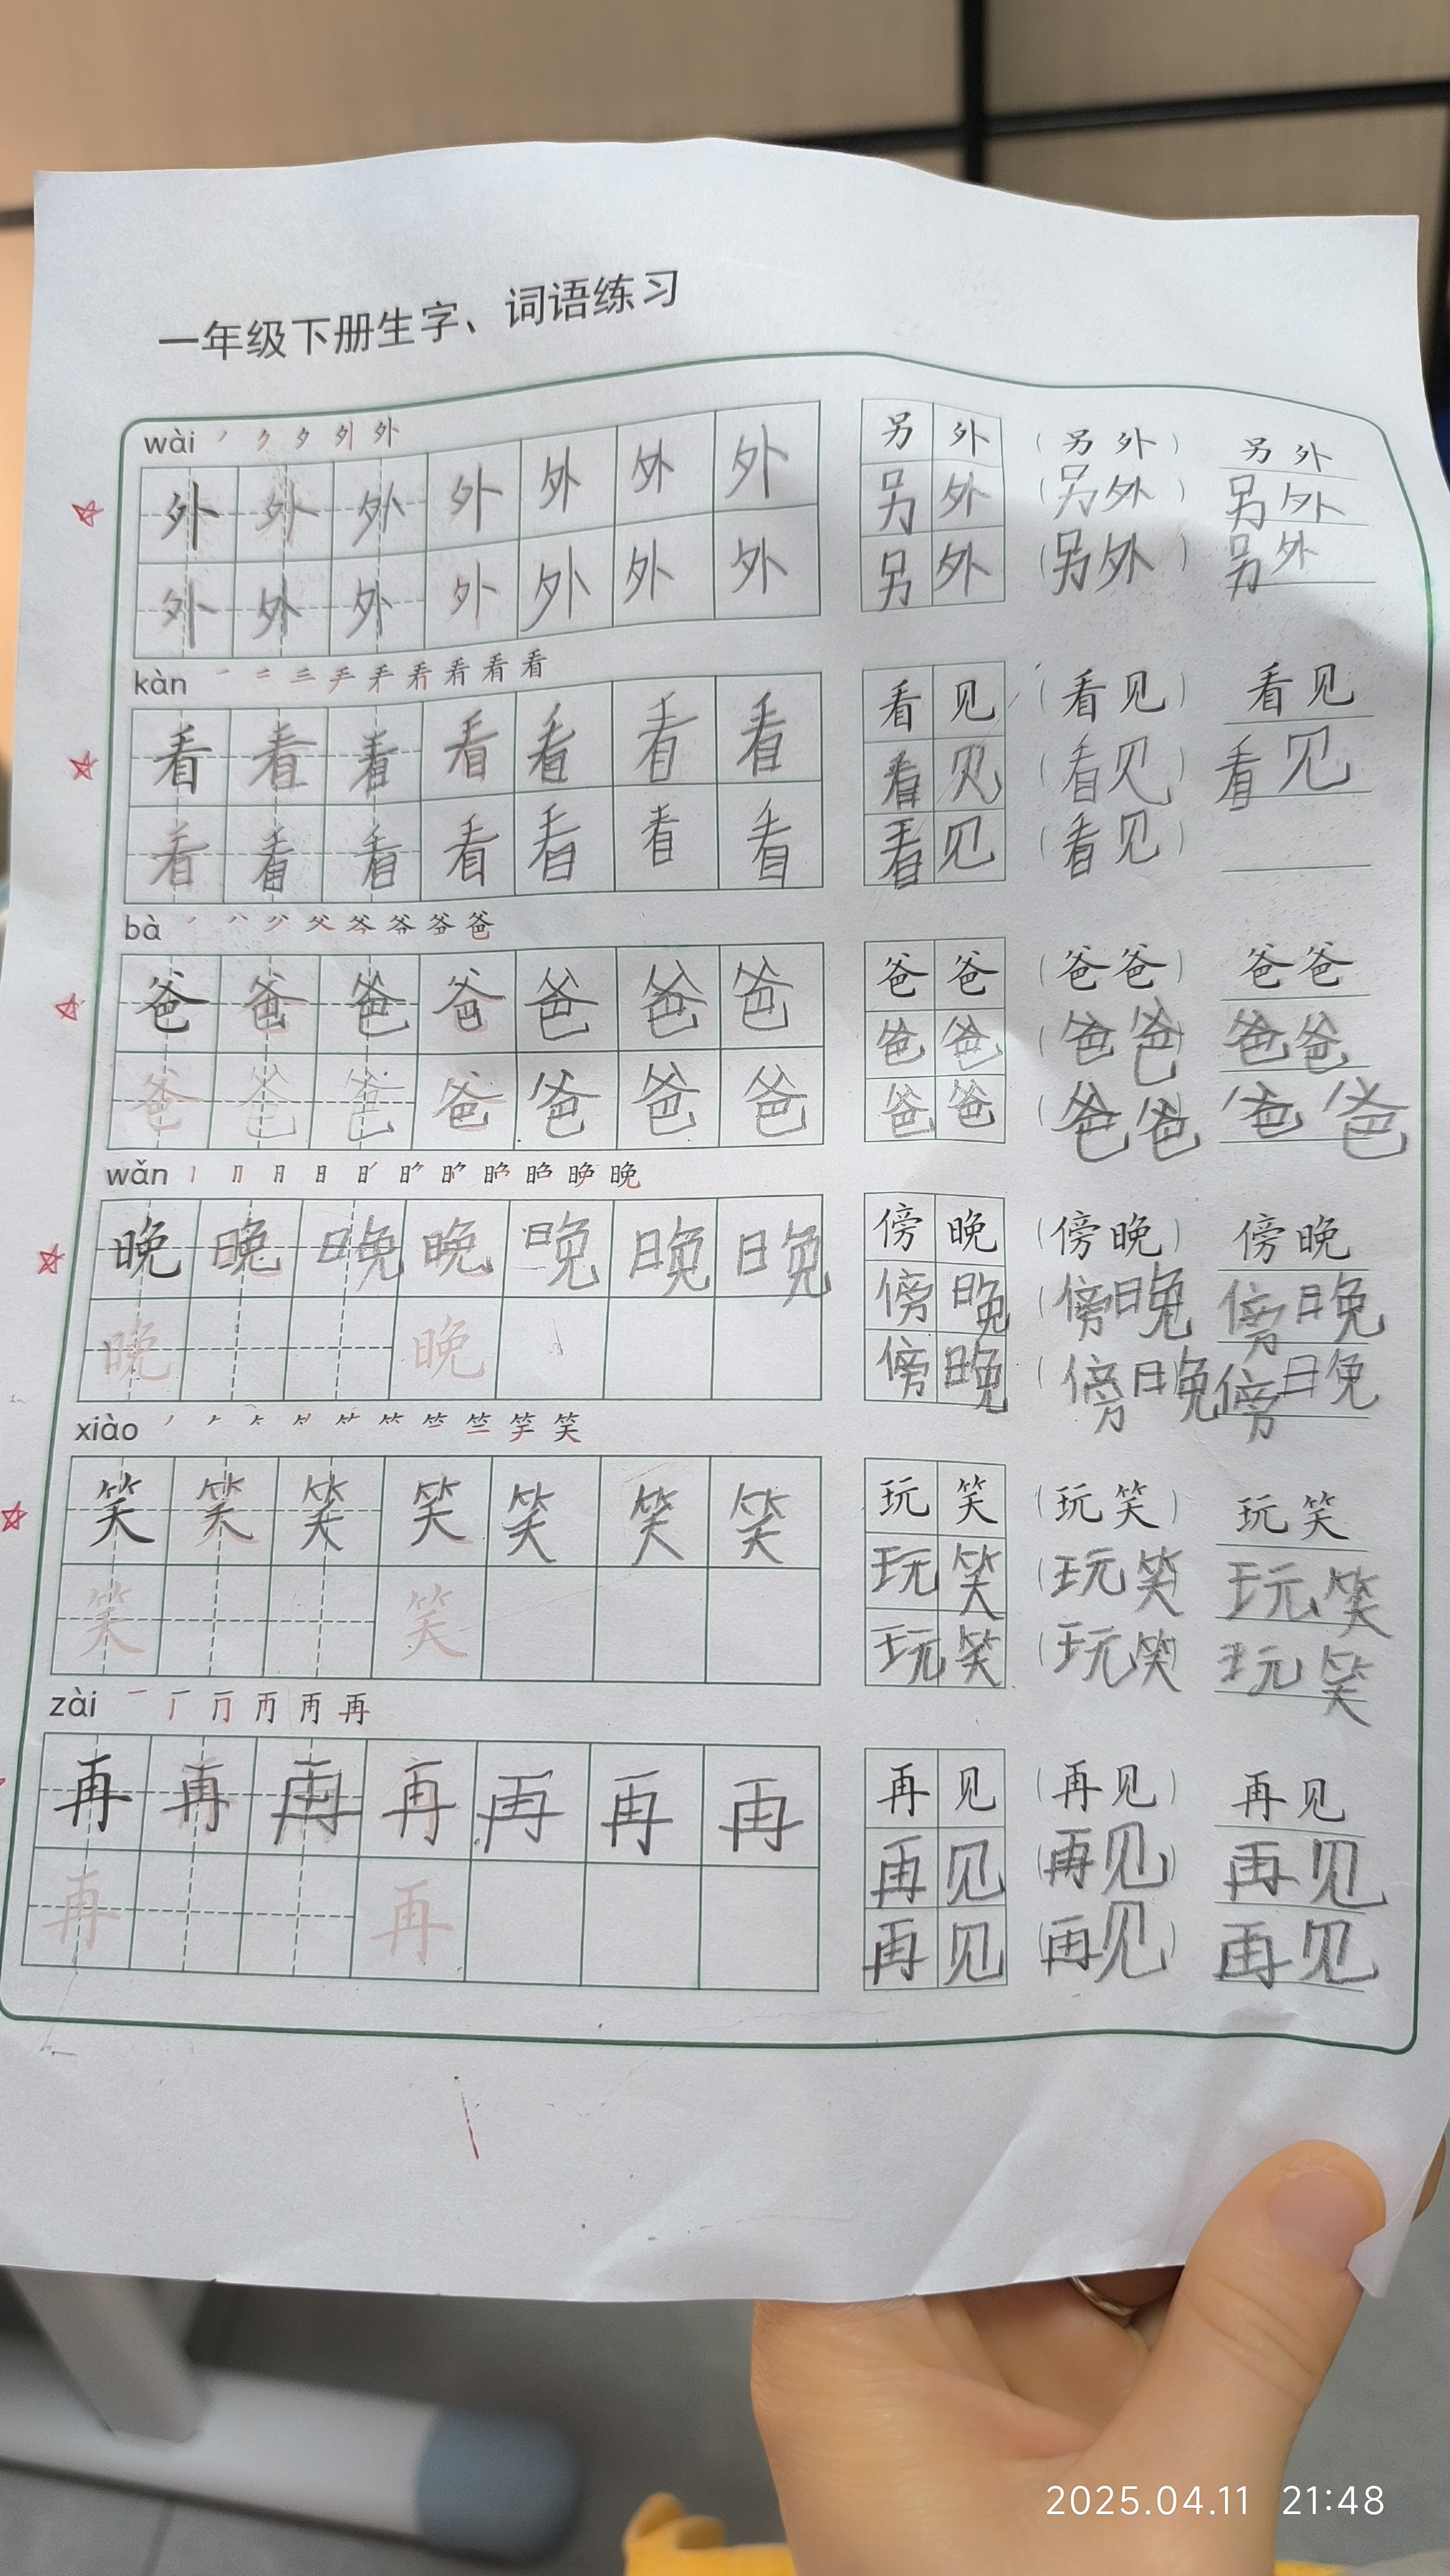 一年级下册生字、词语练习
wài 外
外 外 外 外 外 外 外 另 外 (另 外) 另 外
外 外 外 外 外 外 外 另 外 (另外) 另外
另 外 (另外) 另外
kàn 看
看 看 看 看 看 看 看 看 见 (看 见) 看 见
看 看 看 看 看 看 看 看 见 (看见) 看见
看 见 (看见)
bà 爸
爸 爸 爸 爸 爸 爸 爸 爸 爸 (爸爸) 爸爸
爸 爸 爸 爸 爸 爸 爸 爸 爸 (爸爸) 爸爸
爸 爸 (爸爸 爸爸
wǎn 晚
晚 晚 晚 晚 晚 晚 晚 傍 晚 (傍晚) 傍晚
晚 晚 傍 晚 (傍晚 傍晚
傍 晚 (傍晚 傍晚
xiào 笑
笑 笑 笑 笑 笑 笑 笑 玩 笑 (玩 笑) 玩 笑
笑 笑 玩 笑 (玩笑) 玩笑
玩 笑 (玩笑) 玩笑
zài 再
再 再 再 再 再 再 再 再 见 (再见) 再见
再 再 再 见 (再见) 再见
再 见 (再见) 再见
2025.04.11 21:48